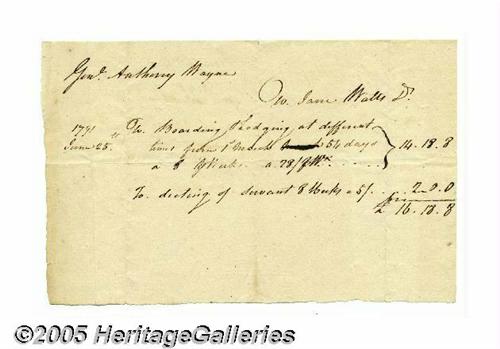 Genl. Anthony Wayne
To Jane Watts Dr.
1791
June 25. " To Boarding & lodging at different
times from 1 March 5½ days
a 8 Weeks a 28/ 14.18.8
To dieting of servant 8 Weeks a 5/ 2.0.0
£ 16.18.8
©2005 HeritageGalleries